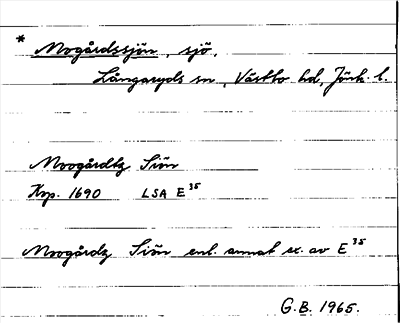 * Mogårdssjön, sjö.
Långaryds sn, Västbo hd, Jönk. l.
Moogårdtz Siön
Krp. 1690 LSA E³⁵
Moogårdz Siön enl. annat ex. av E³⁵
G.B. 1965.